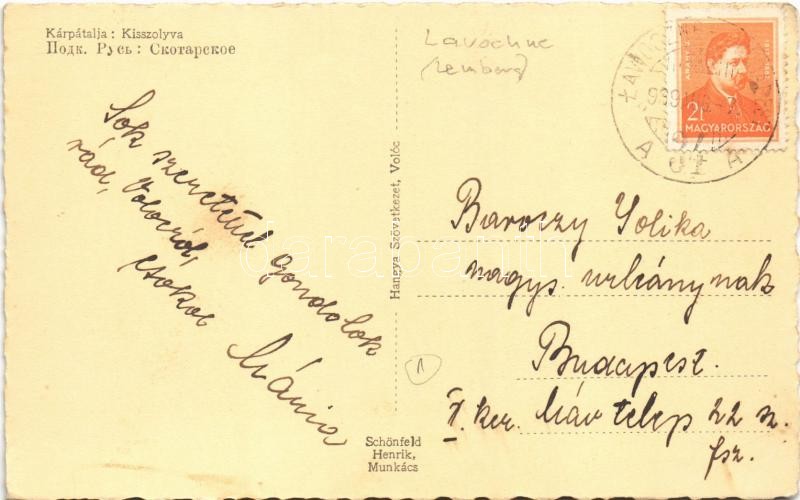 Kárpátalja: Kisszolyva
Подк. Русь: Скотарское
Lavochne
(Lemberg)
2f
MAGYARORSZÁG
Sok szeretettel gondolok
rád, Volócról,
csókol
Mária
Hangya Szövetkezet, Volóc
darabanth
Baroczy Jolika
nagys. urleánynak
Budapest.
X. ker. Máv telep 22 sz.
fsz.
1
Schönfeld
Henrik,
Munkács